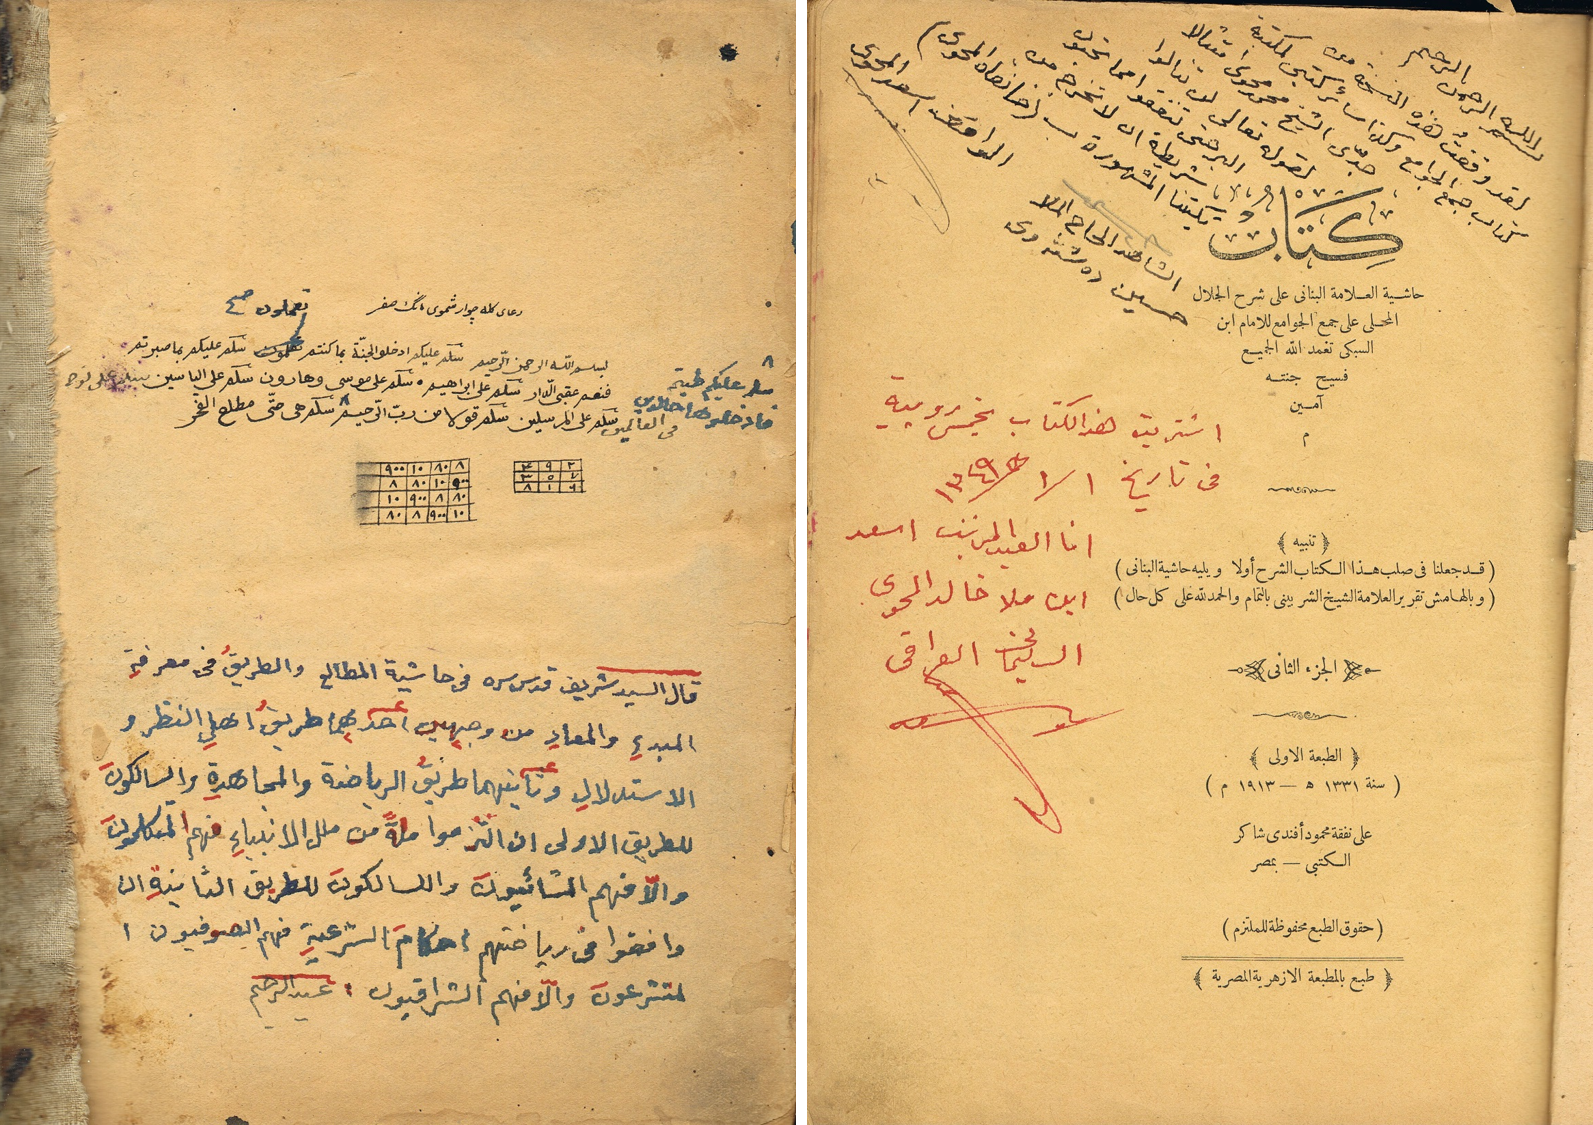 دعاى كله چوار شموى مانگ صفر
تعملون صح
بسم الله الرحمن الرحيم سلم عليكم ادخلوا الجنّة بما كنتم تعملون سلم عليكم بما صبرتم
فنعم عقبى الدار سلم على ابراهيم سلم على موسى وهارون سلم على الياسين سلم على نوح
فى العالمين سلم على المرسلين سلم قولا من ربّ الرّحيم ٨ سلم هى حتّى مطلع الفجر
٨
سلم عليكم طبتم
فادخلوها خالدين
٩٠٠ ١٠ ٨٠ ٨
٨ ٨٠ ١٠ ٩٠٠
١٠ ٩٠٠ ٨ ٨٠
٨٠ ٨ ٩٠٠ ١٠
٤ ٩ ٢
٣ ٥ ٧
٨ ١ ٦
قال السيد شريف قدس سره فى حاشية المطالع والطريقُ فى معرفةِ
المبدءِ والمعادِ من وجهين احدهما طريقُ اهلِ النظر و
الاستدلالِ وثانيهما طريقُ الرياضة والمجاهدةِ والسالكونَ
للطريق الاولى ان التزموا ملةً من ملل الانبياءِ فهم المتكلمونَ
والّا فهم المشائيونَ والسالكونَ للطريق الثانيةِ ان
وافقوا فى رياضتهم احكامَ الشرعيةِ فهم الصوفيون ا
لمتشرعونَ والّا فهم الاشراقيون : عبدالرحيم
بسم الله الرحمن الرحيم
لقد وقفتُ هذه النسخة من
كتاب جمع الجوامع وكذا سائر كتبى لمكتبة
جدّى الشيخ محمد محوى امتثالا
لقوله تعالى لن تنالوا
البر حتى تنفقوا مما تحبون
وشريطة ان لا تخرج من
مكتبتنا المشهورة بـ (خانقاه المحوى)
الواقف اسعد المحوى
الشاهد الحاج الملا
حسين
كتاب
حاشية العلامة البنانى على شرح الجلال
المحلى على جمع الجوامع للامام ابن
السبكى تغمد الله الجميع
فسيح جنته
آمين
م
اشتريت هذا الكتاب بخمس روبية
فى تاريخ ١/١/١٣٤٩ هـ
انا العبد المذنب اسعد
ابن ملا خالد المحوى
السليمانى العراقى
﴿ تنبيه ﴾
( قد جعلنا فى صلب هذا الكتاب الشرح أولا ويليه حاشية البنانى )
( وبالهامش تقرير العلامة الشيخ الشربينى بالتمام والحمد لله على كل حال )
الجزء الثانى
﴿ الطبعة الاولى ﴾
( سنة ١٣٣١ ه — ١٩١٣ م )
على نفقة محمود أفندى شاكر
الكتبى — بمصر
( حقوق الطبع محفوظة للملتزم )
﴿ طبع بالمطبعة الازهرية المصرية ﴾